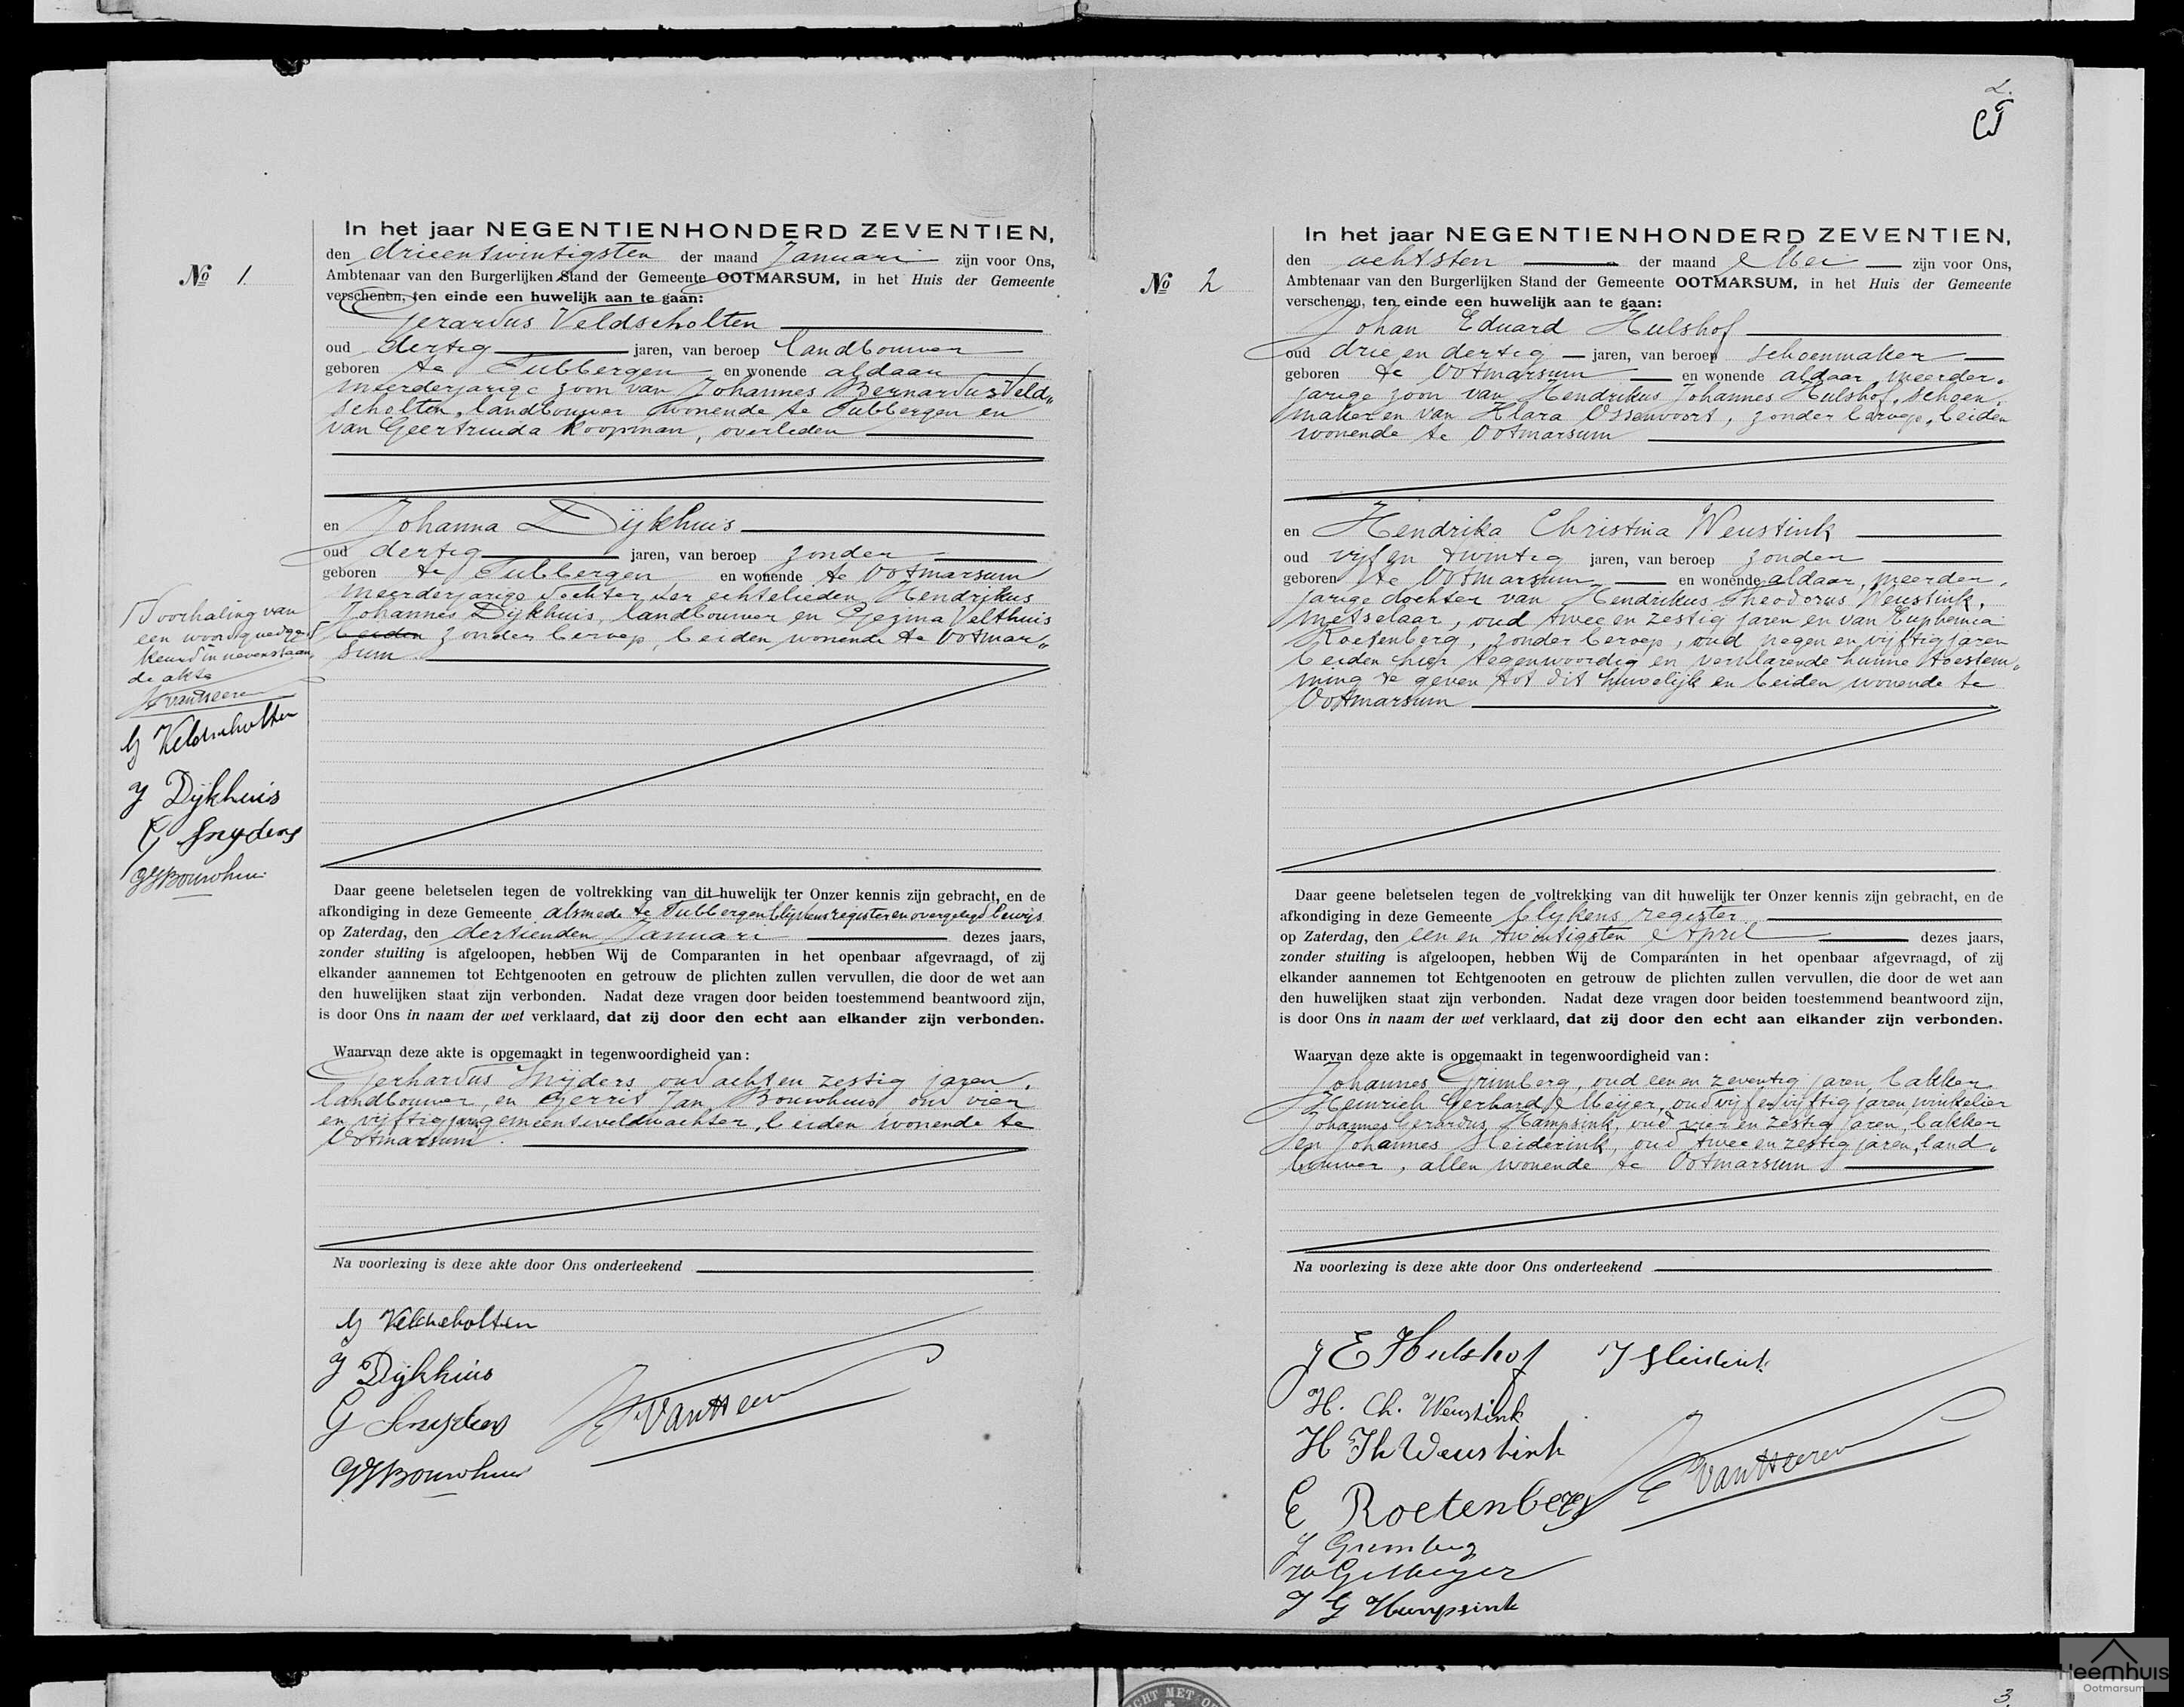 № 1
In het jaar NEGENTIENHONDERD ZEVENTIEN,
den drieentwintigsten der maand Januari zijn voor Ons,
Ambtenaar van den Burgerlijken Stand der Gemeente OOTMARSUM, in het Huis der Gemeente
verschenen, ten einde een huwelijk aan te gaan:
Gerardus Veldscholten
oud dertig jaren, van beroep landbouwer
geboren te Tubbergen en wonende aldaar
meerderjarige zoon van Johannes Bernardus Veld„
scholten, landbouwer wonende te Tubbergen en
van Geertruida Koopman, overleden
en Johanna Dijkhuis
oud dertig jaren, van beroep zonder
geboren te Tubbergen en wonende te Ootmarsum
meerderjarige dochter der echtelieden Hendrikus
Johannes Dijkhuis, landbouwer en Gezina Velthuis
beiden zonder beroep, beiden wonende te Ootmar„
sum
Doorhaling van
een woord goedge„
keurd in nevenstaan„
de akte
vanHeeren
G Veldscholten
J Dijkhuis
G Snyders
GJBouwhuis
Daar geene beletselen tegen de voltrekking van dit huwelijk ter Onzer kennis zijn gebracht, en de
afkondiging in deze Gemeente alsmede te Tubbergen blijkens register en overgelegd bewijs
op Zaterdag, den dertienden Januari dezes jaars,
zonder stuiting is afgeloopen, hebben Wij de Comparanten in het openbaar afgevraagd, of zij
elkander aannemen tot Echtgenooten en getrouw de plichten zullen vervullen, die door de wet aan
den huwelijken staat zijn verbonden. Nadat deze vragen door beiden toestemmend beantwoord zijn,
is door Ons in naam der wet verklaard, dat zij door den echt aan elkander zijn verbonden.
Waarvan deze akte is opgemaakt in tegenwoordigheid van:
Gerhardus Snijders oud acht en zestig jaren,
landbouwer, en Gerrit Jan Bouwhuis, oud vier
en vijftig jaren gemeenteveldwachter, beiden wonende te
Ootmarsum.
Na voorlezing is deze akte door Ons onderteekend
G Veldscholten
J Dijkhuis
G Snyders
vanHeeren
GJBouwhuis
2.
№ 2
In het jaar NEGENTIENHONDERD ZEVENTIEN,
den achtsten der maand Mei zijn voor Ons,
Ambtenaar van den Burgerlijken Stand der Gemeente OOTMARSUM, in het Huis der Gemeente
verschenen, ten einde een huwelijk aan te gaan:
Johan Eduard Hulshof
oud drie en dertig jaren, van beroep schoenmaker
geboren te Ootmarsum en wonende aldaar, meerder„
jarige zoon van Hendrikus Johannes Hulshof, schoen„
maker en van Klara Ossenvoort, zonder beroep, beiden
wonende te Ootmarsum
en Hendrika Christina Weustink
oud vijf en twintig jaren, van beroep zonder
geboren te Ootmarsum en wonende aldaar, meerder„
jarige dochter van Hendrikus Theodorus Weustink,
metselaar, oud twee en zestig jaren en van Euphemia
Roetenberg, zonder beroep, oud negen en vijftig jaren
beiden hier tegenwoordig en verklarende hunne toestem„
ming te geven tot dit huwelijk en beiden wonende te
Ootmarsum
Daar geene beletselen tegen de voltrekking van dit huwelijk ter Onzer kennis zijn gebracht, en de
afkondiging in deze Gemeente blijkens register
op Zaterdag, den een en twintigsten April dezes jaars,
zonder stuiting is afgeloopen, hebben Wij de Comparanten in het openbaar afgevraagd, of zij
elkander aannemen tot Echtgenooten en getrouw de plichten zullen vervullen, die door de wet aan
den huwelijken staat zijn verbonden. Nadat deze vragen door beiden toestemmend beantwoord zijn,
is door Ons in naam der wet verklaard, dat zij door den echt aan elkander zijn verbonden.
Waarvan deze akte is opgemaakt in tegenwoordigheid van:
Johannes Grimberg, oud een en zeventig jaren, bakker
Heinrich Gerhard Meijer, oud vijf en vijftig jaren, winkelier
Johannes Gerardus Kampsink, oud vier en zestig jaren, bakker
en Johannes Sleiderink, oud twee en zestig jaren, land„
bouwer, allen wonende te Ootmarsum
Na voorlezing is deze akte door Ons onderteekend
J E Hulshof J Sleiderink
H. Ch. Weustink
H Th Weustink
E Roetenberg
vanHeeren
J Grimberg
HGMeijer
J G Kampsink
3.
Heemhuis
Ootmarsum